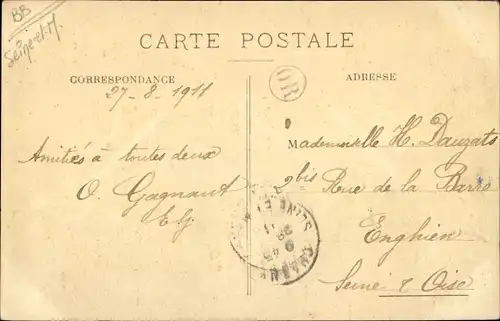 BB
Seine-et-M.
CARTE POSTALE
CORRESPONDANCE
ADRESSE
27-8-1911
OR
Amitiés à toutes deux
O. Gagnant
E G
Mademoiselle H. Dauzats
2bis Rue de la Barre
Enghien
Seine & Oise